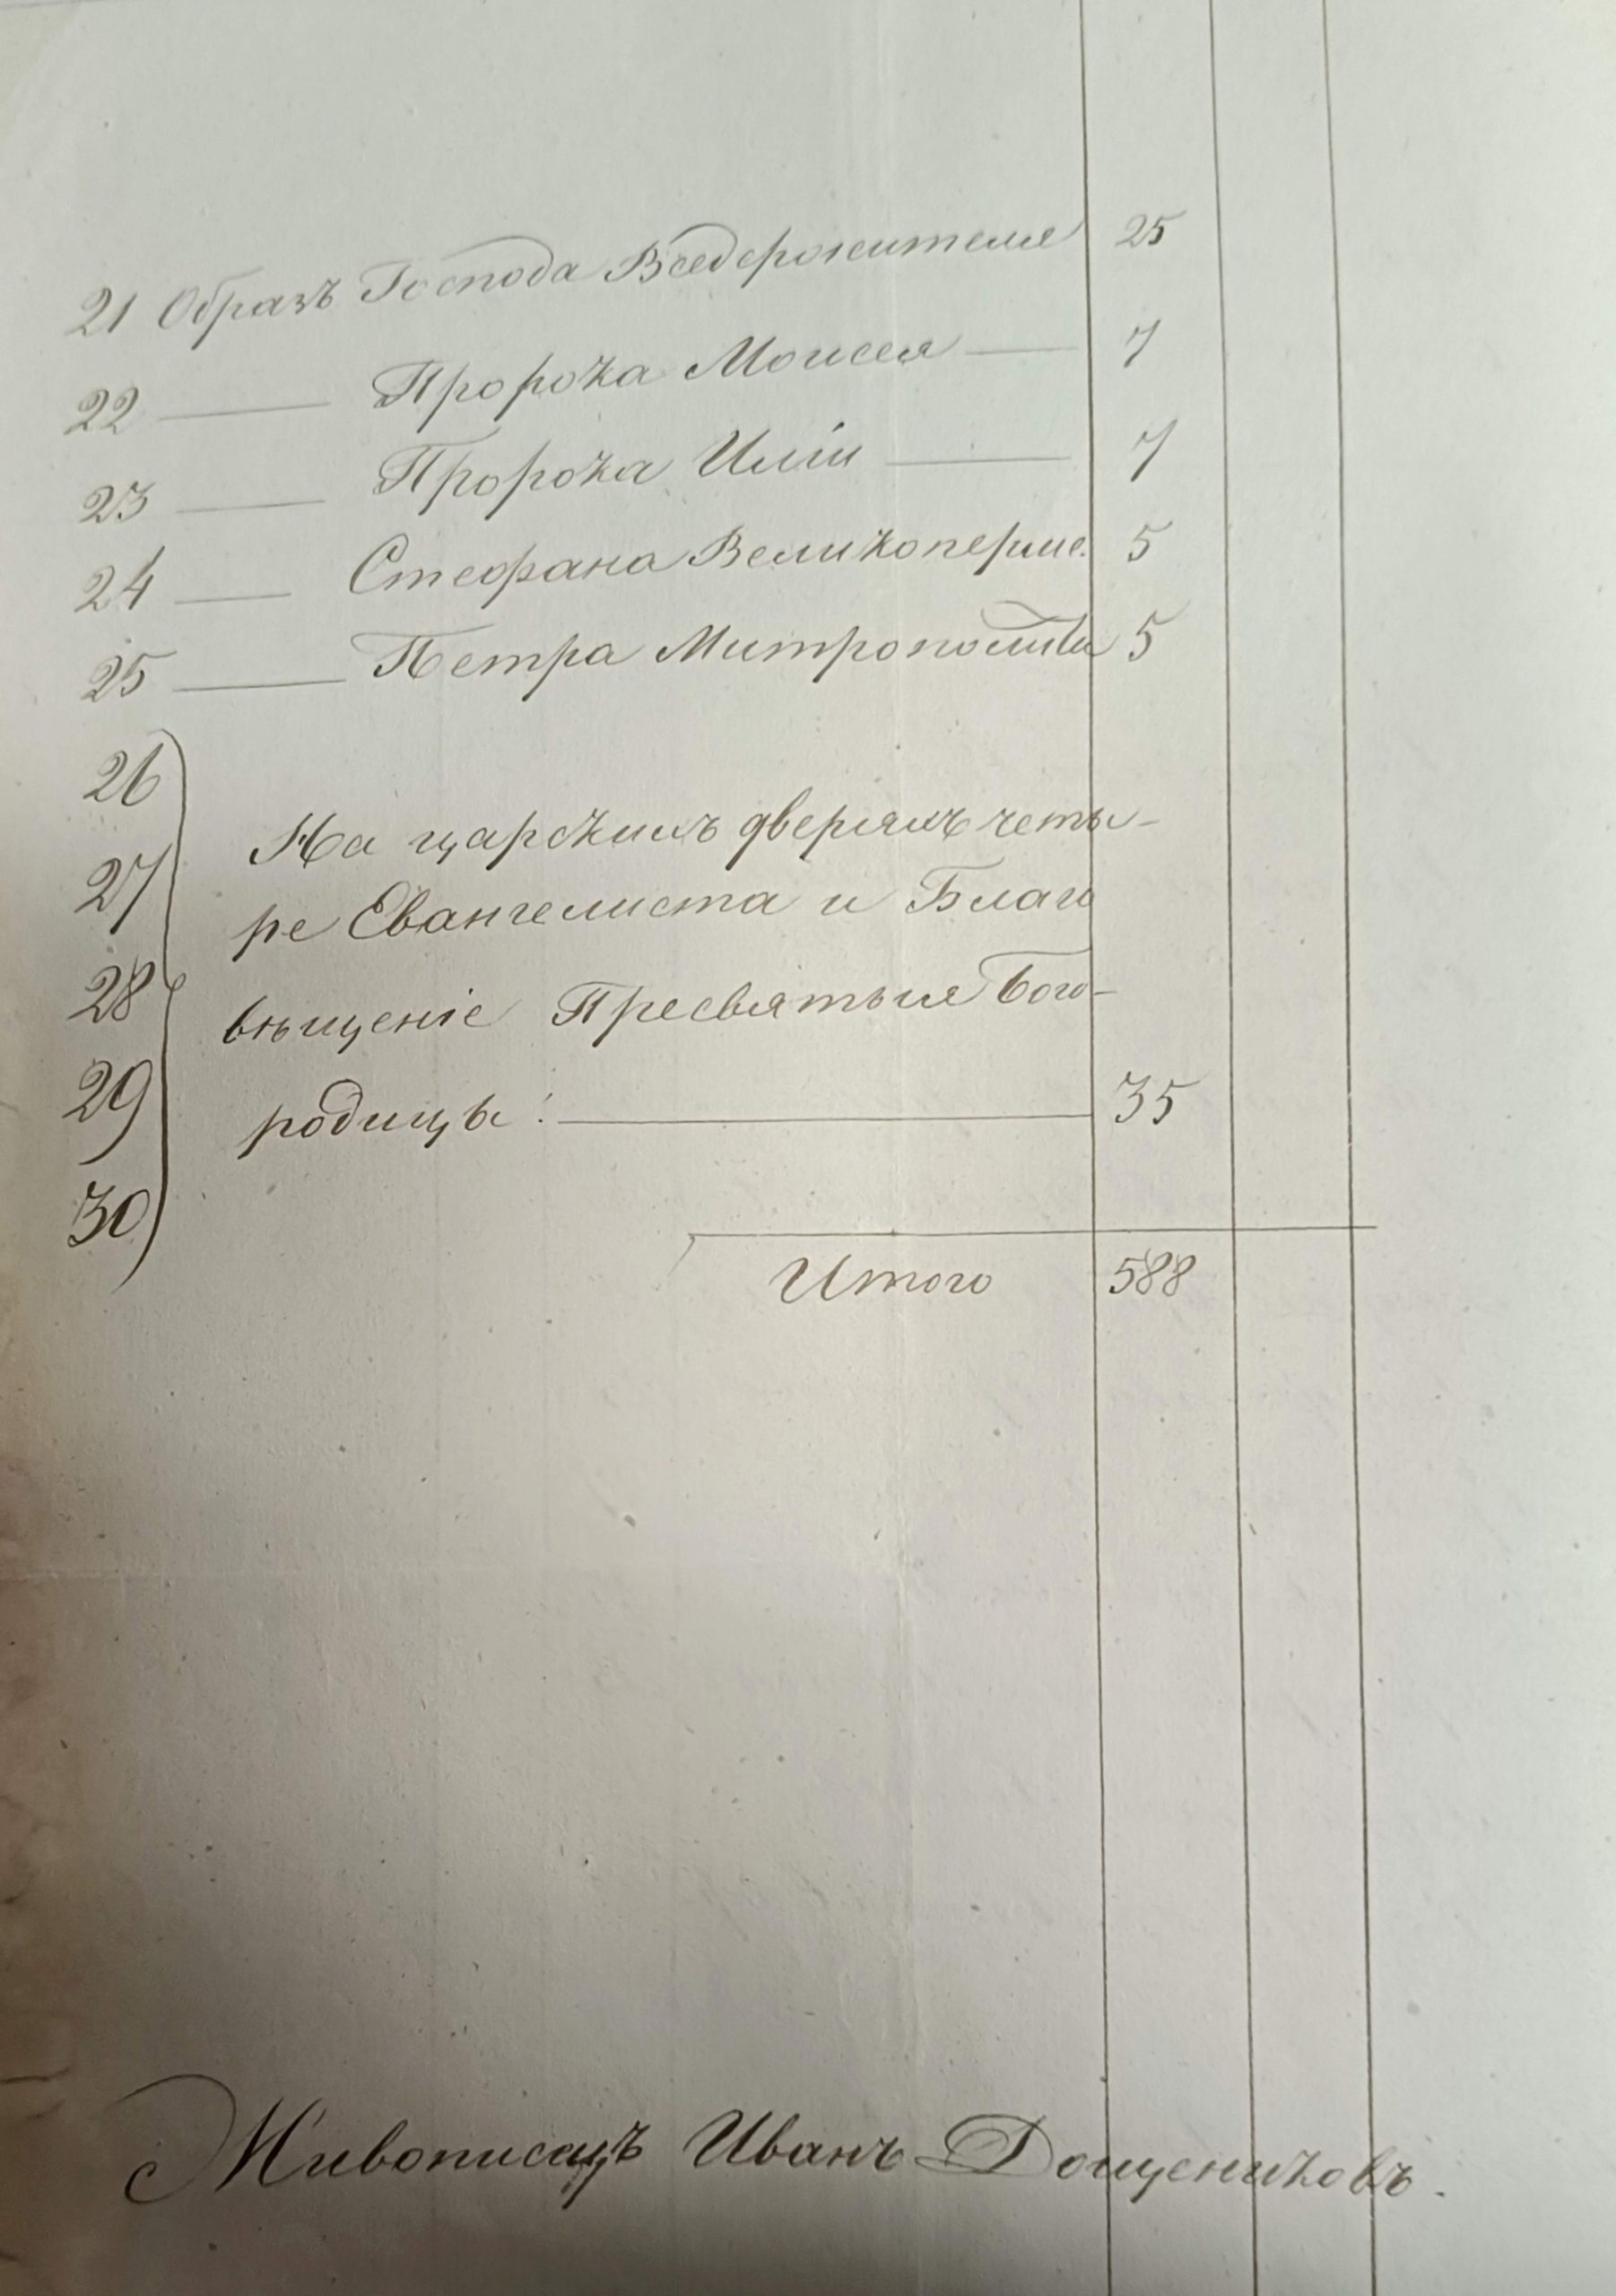 21 Образъ Господа Вседержителя 25
22 — Пророка Моисея — 7
23 — Пророка Иліи — 7
24 — Стефана Великоперме. 5
25 — Петра Митрополита 5
26
27 На царскихъ дверяхъ четы-
ре Евангелиста и Благо
28 вѣщеніе Пресвятыя Бого-
29 родицы. — 35
30
Итого 588
Живописецъ Иванъ Дощениковъ.